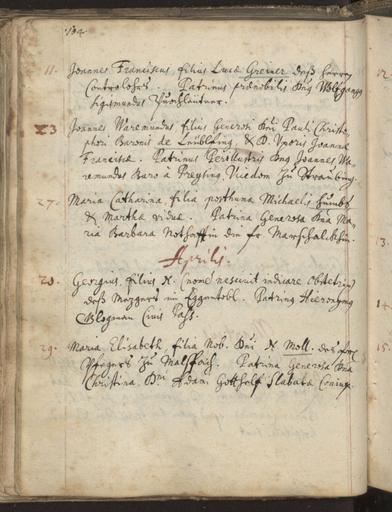 184
11. Joannes Franciscus filius Lucæ Greiner deß herrn
Controlohrs. Patrinus prænobilis Dng Wolfgangg
Sigismundus
23 Joannes Waremundus, filius Generosi Dni Pauli Christo-
phori Baronis de Leublfing, & D. Uxoris Joannæ
Franciscæ. Patrinus Perillustris Dng Joannes Wa-
remundus Baro à Preysing Vicedom zu Straubing.
27. Maria Catharina, filia posthuma Michaelis
& Marthæ viduæ. Patrina Generosa Dna Ma-
ria Barbara Nothafftin die fr. Marschalckhin.
Aprilis.
20. Georgius, filius N. (nomē nescivit indicare obstetrix)
deß Mezgers im Eggentobl. Patring Hieronymg
Blogman Civis Pass.
29. Maria Elisabeth filia Nob. Dni N. Moll. des
Pflegers zu . Patrina Generosa Dna
Christina, Dni Adam. Gotthelf Slabata Coniunx.
12.
13.
14.
15.